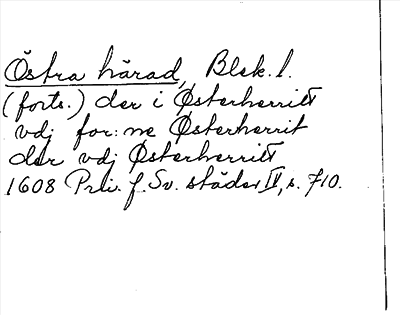 Östra härad, Blek. l.
(forts.) der i Østerherritt
vdj for:ne Østerherrit
der vdj Østerherritt
1608 Priv. f. Sv. städer IV, s. 710.